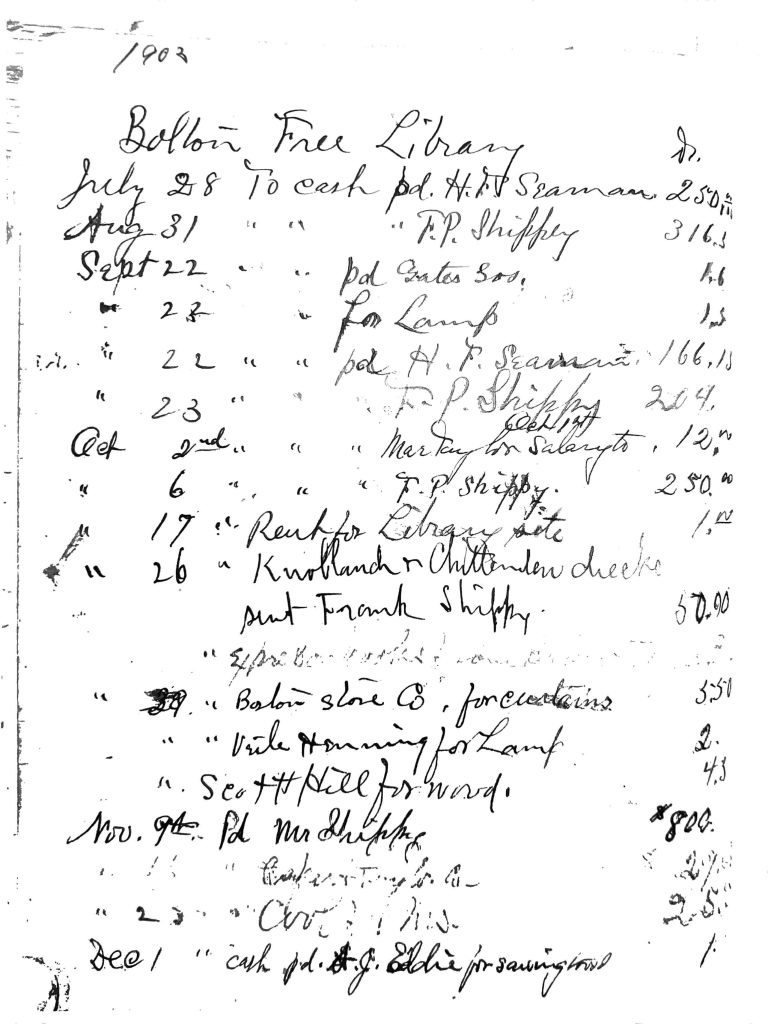 1903
Bolton Free Library Dr.
July 28 To cash pd. H.F. Seaman. 250.00
Aug 31 " " " F.P. Shippey 316.
Sept 22 " " pd Gates Bros. 1.
" 23 " for Lamp 1.
" 22 " " pd H. F. Seaman. 166.15
" 23 " " F. P. Shippy 204.
Oct 1st
Oct 2nd " " " Mar Taylor Salary to . 12.00
" 6 " " " F.P. Shippy. 250.00
" 17 " Rent for Library site 1.00
" 26 " Chittenden checke
sent Frank Shippy. 50.00
" Express on
" 29 " Boston store Co, for curtains 5.50
" " Henning for Lamp 2.
". Scott Hill for wood. 4.
Nov. 9th. Pd Mr Shippy $800.
" " Taylor Co
" 23 " 25.
Dec 1 " cash pd. A.J. Eddie for sawing wood 1.